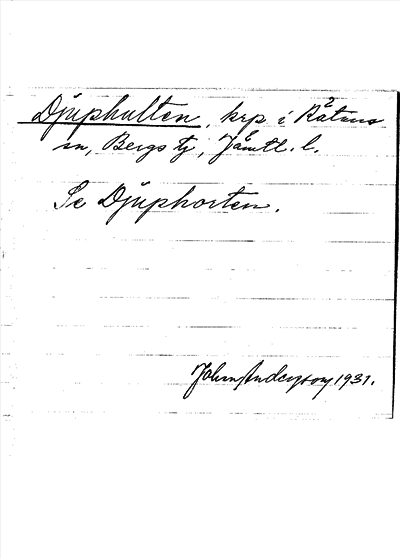 Djuphulten, krp i Rätans
sn, Bergs tg, Jämtl. l.
Se Djuphorten.
John Anderson 1931.